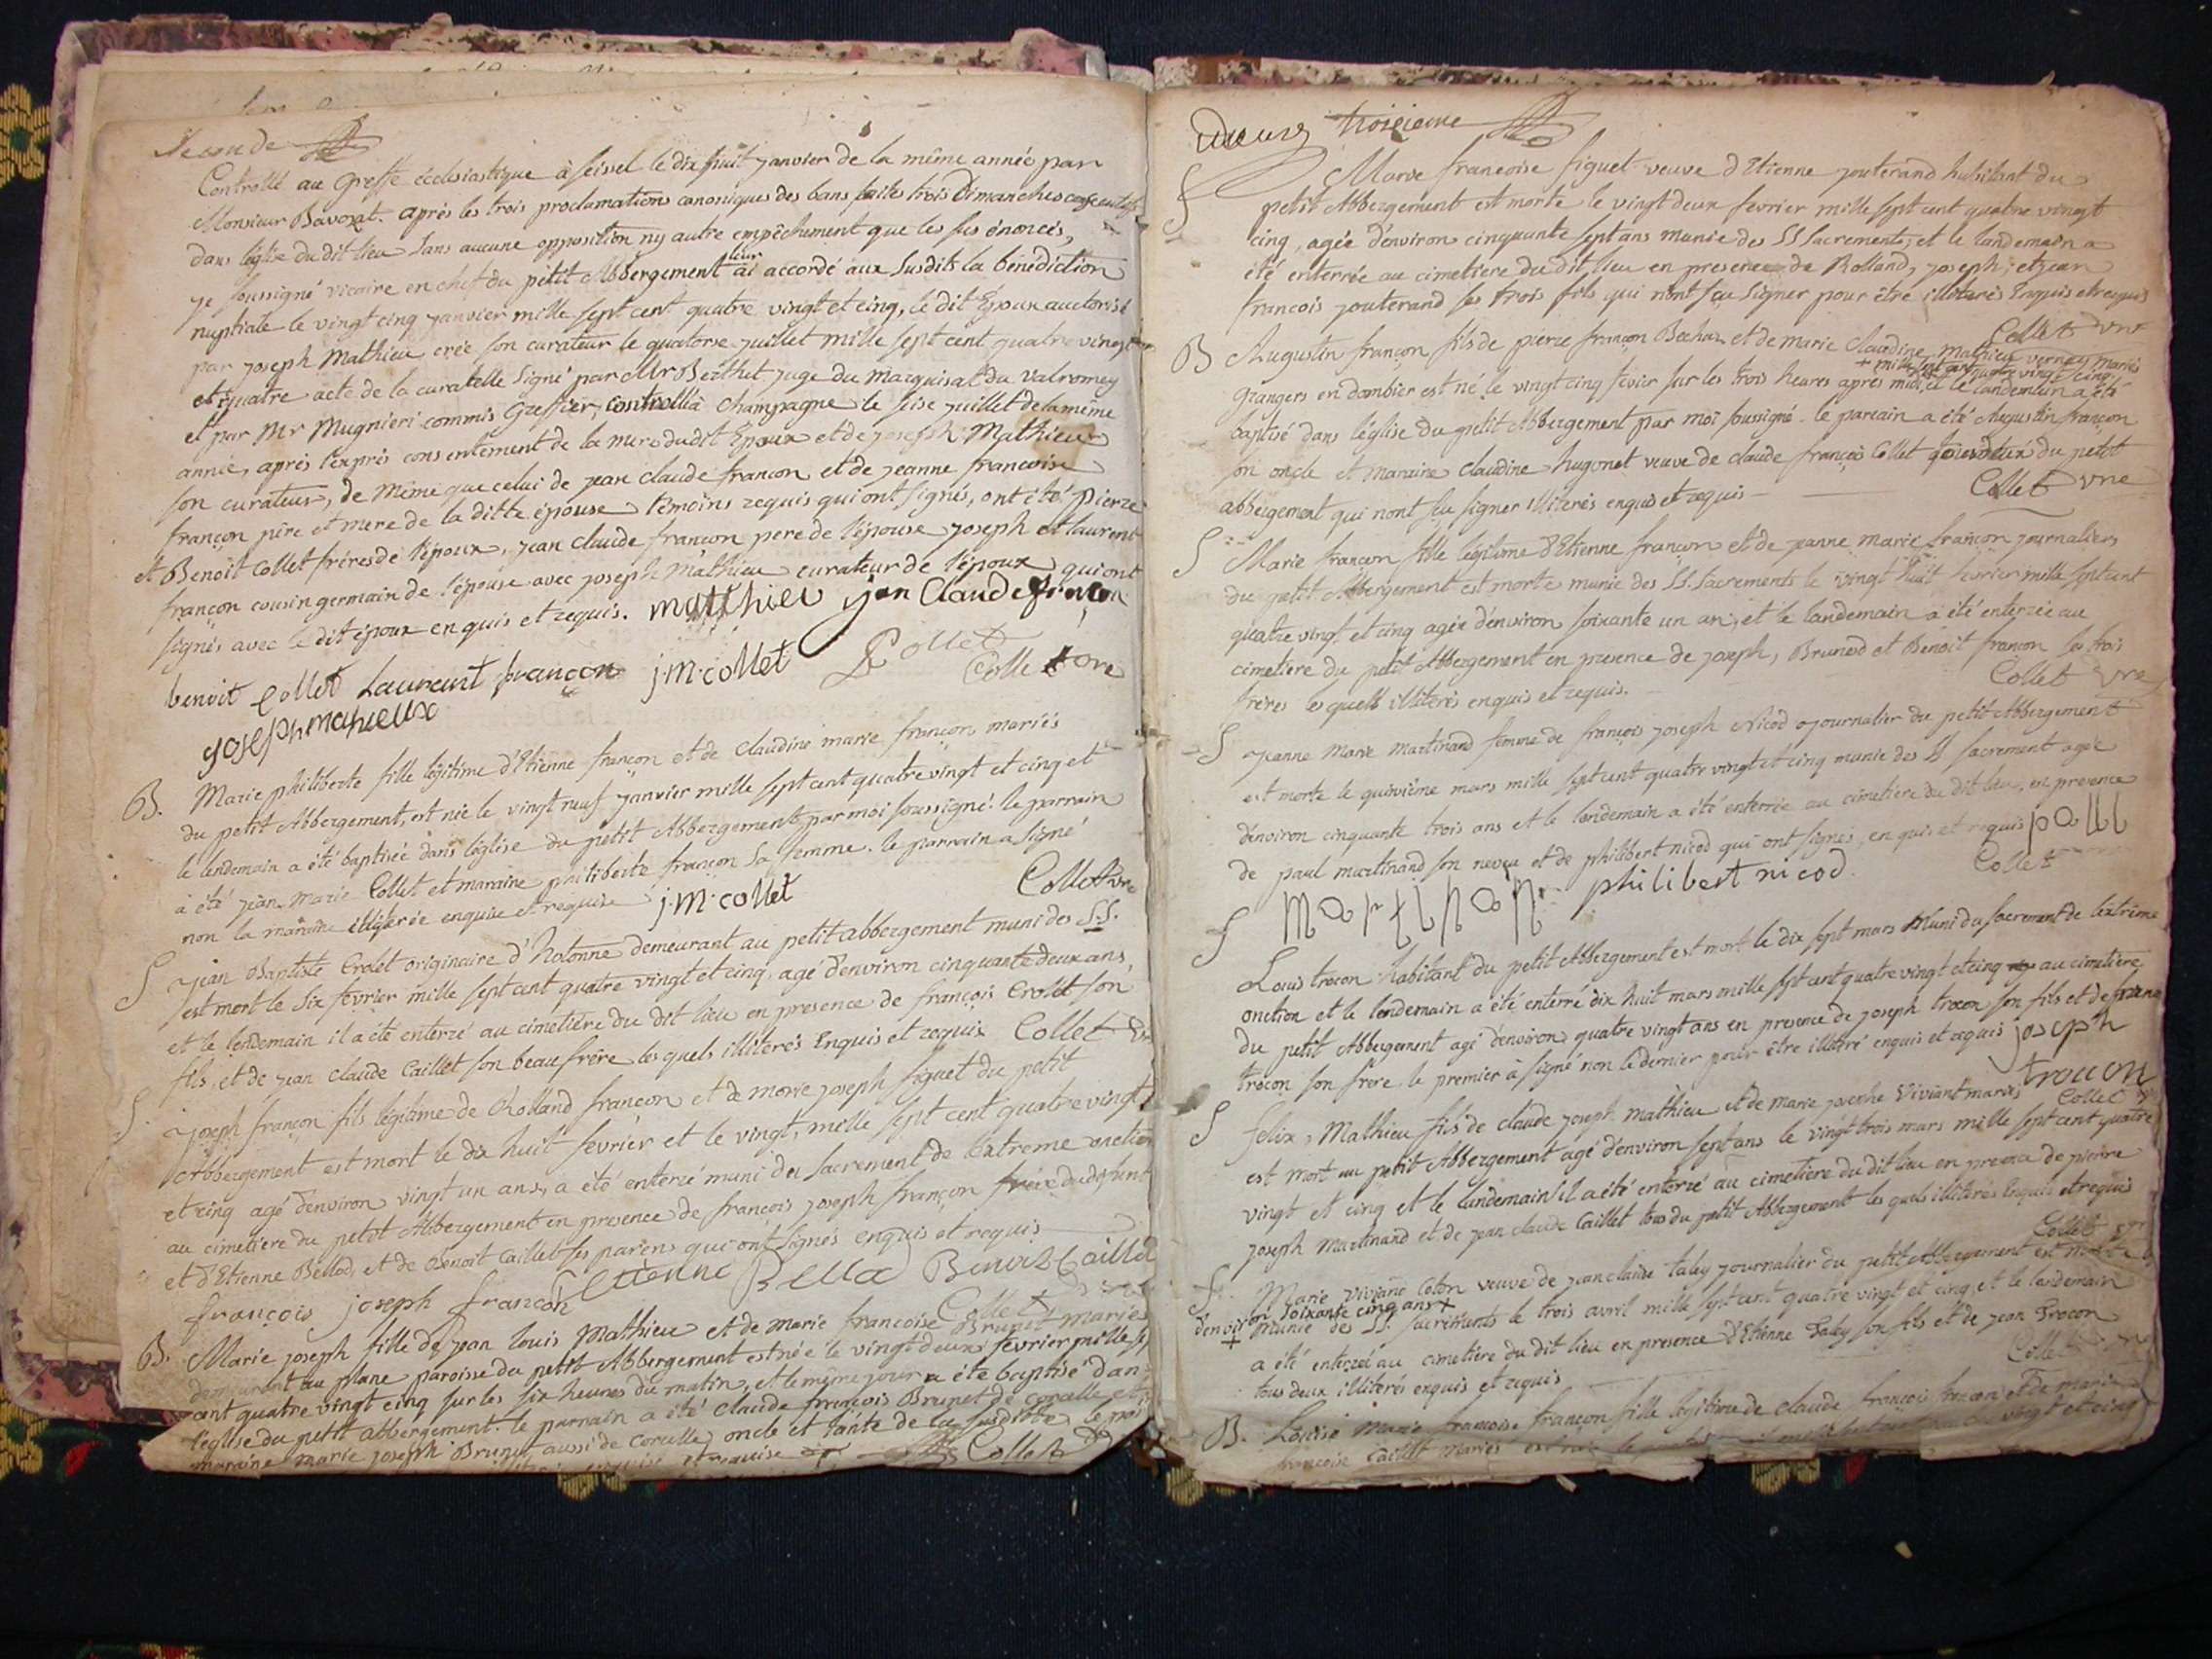 seconde
Controllé au Greffe écclesiastique à seissel le dix huit janvier de la même année par
Monsieur Bavozat. après les trois proclamations canoniques des bans faites trois Dimanches consecutifs
dans léglise du dit lieu sans aucune opposition ny autre empêchement que les sus énoncés,
je soussigné vicaire en chef du petit Abbergement leur ai accordé aux susdits la bénédiction
nuptiale le vingt cinq janvier mille sept cent quatre vingt et cinq, le dit Epoux auctorisé
par joseph Mathieu crée son curateur le quatorse juillet mille sept cent quatre vingt
et quatre acte de la curatelle signé par Mr Berthet juge du Marquisat du valromey
et par Mr Mugnieri commis Greffier, controllé à Champagne le seise juillet de la même
année, après l'exprès consentement de la mere du dit Epoux et de joseph Mathieu
son curateur, de même que celui de jean claude françon et de jeanne francoise
françon père et mere de la ditte épouse témoins requis qui ont signés, ont été pierre
et Benoit Collet fréres de l'époux, jean claude françon pere de l'épouse joseph et laurent
françon cousin germain de l'épouse avec joseph Mathieu curateur de l'époux qui ont
signés avec le dit époux enquis et requis. matthieu jan Claude françon
benoit collet Laurent françon j.m.collet P Collet
Collet vre
joseph mathieux
B. Marie philiberte fille légitime d'Etienne françon et de Claudine marie françon mariés
du petit Abbergement, est née le vingt neuf janvier mille sept cent quatre vingt et cinq et
le lendemain a été baptisée dans léglise du petit Abbergement par moi soussigné. le parrain
a été jean marie Collet et maraine philiberte françon sa femme. le parrain a signé
non la maraine illiterée enquise et requise j.m.collet Collet vre
S jean Baptiste Crolet originaire d'hotonne demeurant au petit abbergement muni des S.S.
est mort le six fevrier mille sept cent quatre vingt et cinq, agé d'environ cinquante deux ans,
et le lendemain il a été enterré au cimetière du dit lieu en presence de françois Crolet son
fils, et de jean claude Caillet son beau frére les quels illiterés Enquis et requis Collet vre
S. joseph françon fils légitime de Rolland françon et de marie joseph figuet du petit
Abbergement est mort le dix huit fevrier et le vingt, mille sept cent quatre vingt
et cinq agé d'environ vingt un ans, a été enterré muni du sacrement de l'extreme onction
au cimetiere du petit Abbergement en presence de françois joseph françon frére du defunt
et d'Etienne Bellod, et de Benoit Caillet ses parens qui ont signés enquis et requis
françois joseph françon Etienne Bellod Benoit Caillet
Collet vre
B. Marie joseph fille de jean louis Mathieu et de marie françoise Brunet mariés
demeurant au plane paroisse du petit Abbergement est née le vingt deux fevrier mille sept
cent quatre vingt cinq sur les six heures du matin, et le même jour a été baptisé dans
l'église du petit abbergement. le parrain a été claude françois Brunet de corcelle et
maraine marie joseph Brunet aussi de Corcelle, oncle et tante de la susditte, le
et requise Collet vre
troisieme
S Marie francoise figuet veuve d'Etienne jouterand habitant du
petit Abbergement est morte le vingt deux fevrier mille sept cent quatre vingt
cinq, agée d'environ cinquante sept ans munie des SS Sacrements, et le landemain a
été enterrée au cimetiere du dit lieu en presence de Rolland, joseph, et jean
francois jouterand ses trois fils qui n'ont sçu signer pour être illiterés Enquis et requis
Collet vre
B Augustin françon fils de pierre françon Bechaz et de marie Claudine Mathieu verney mariés
+ mille sept cent quatre vingt cinq
Grangers en dombier est né le vingt cinq fevier sur les trois heures après midi, et le landemain a été
baptisé dans léglise du petit Abbergement par moi soussigné. le parrain a été Augustin françon
son oncle et maraine claudine hugonet veuve de claude françois Collet tous deux du petit
abbergement qui n'ont sçu signer illiterés enquis et requis
Collet vre
S Marie françon fille légitime d'Etienne françon et de jeanne marie françon journaliers
du petit Abbergement est morte munie des SS. sacrements le vingt huit fevrier mille sept cent
quatre vingt et cinq agée d'environ soixante un an, et le landemain a été enterrée au
cimetiere du petit Abbergement en presence de joseph, Brunod et Benoit françon ses trois
fréres les quels illiterés enquis et requis.
Collet vre
S jeanne Marie martinand femme de françois joseph Nicod journalier du petit Abbergement
est morte le quinsième mars mille sept cent quatre vingt et cinq munie des SS sacrement agée
d'environ cinquante trois ans et le lendemain a été enterrée au cimetiere du dit lieu, en presence
de paul martinand son neveu et de philibert nicod qui ont signés, enquis et requis paul
martinan philibert nicod.
Collet
S Louis trocon habitant du petit Abbergement est mort le dix sept mars Muni du sacrement de l'extrême
onction et le lendemain a été enterré dix huit mars mille sept cent quatre vingt et cinq au cimetière
du petit Abbergement agé d'environ quatre vingt ans en presence de joseph trocon son fils et de
trocon son frere le premier à signé non le dernier pour être illitéré enquis et requis joseph
trocon
Collet
S felix Mathieu fils de claude joseph mathieu et de marie josephe Viviant mariés
est mort au petit Abbergement agé d'environ sept ans le vingt trois mars mille sept cent quatre
vingt et cinq et le landemain il a été enterré au cimetiere du dit lieu en presence de pierre
joseph Martinand et de jean claude Caillet tous du petit Abbergement les quels illiterés Enquis et requis
Collet vre
S. Marie viviane Colon veuve de jean claude taley journalier du petit Abbergement est morte
d'environ soixante cinq ans +
+ munie des SS. sacrements le trois avril mille sept cent quatre vingt et cinq, et le landemain
a été enterrée au cimetière du dit lieu en presence d'Etienne Taley son fils et de jean Trocon
tous deux illiterés enquis et requis
Collet vre
B. Louise Marie françoise françon fille légitime de claude françois trocon et de marie
françoise Caillet mariés est née le vingt et cinq